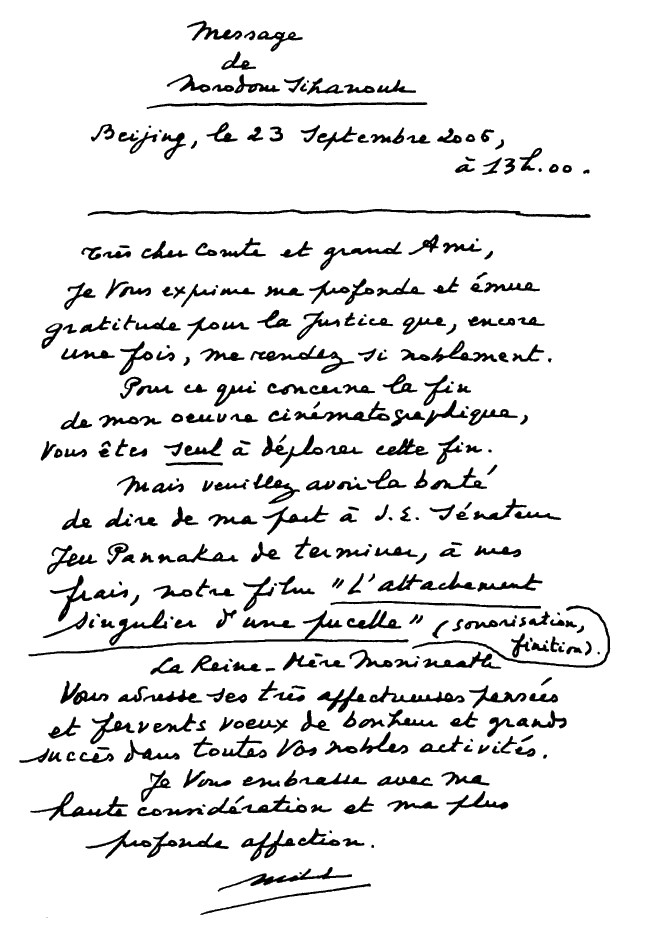 Message
de
Norodom Sihanouk
Beijing, le 23 Septembre 2006,
à 13h.00.
Très cher Comte et grand Ami,
Je Vous exprime ma profonde et émue
gratitude pour la Justice que, encore
une fois, me rendez si noblement.
Pour ce qui concerne la fin
de mon oeuvre cinématographique,
Vous êtes seul à déplorer cette fin.
Mais veuillez avoir la bonté
de dire de ma part à S.E. Sénateur
Jeu Pannakar de terminer, à mes
frais, notre film "L'attachement
singulier d'une pucelle" (sonorisation,
finition).
La Reine-Mère Monineath
Vous adresse ses très affectueuses pensées
et fervents voeux de bonheur et grands
succès dans toutes Vos nobles activités.
Je Vous embrasse avec ma
haute considération et ma plus
profonde affection.